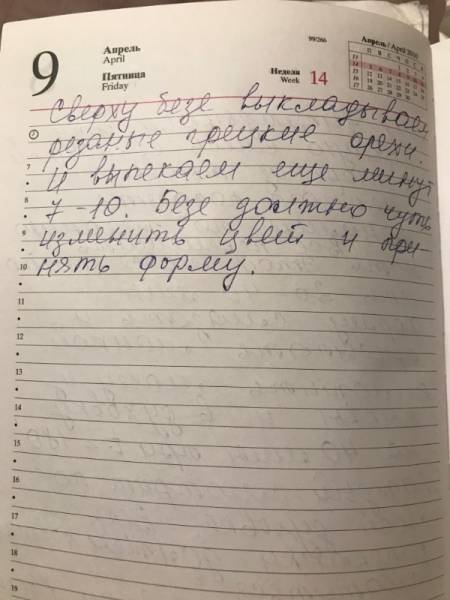 9
Апрель
April
Пятница
Friday
99/266
Неделя
Week
14
Апрель / April
Сверху безе выкладываем
резаные грецкие орехи.
7
И выпекаем еще минут
8
7-10. Безе должно чуть
9
изменить цвет и при-
10
нять форму.
11
12
13
14
15
16
17
18
19